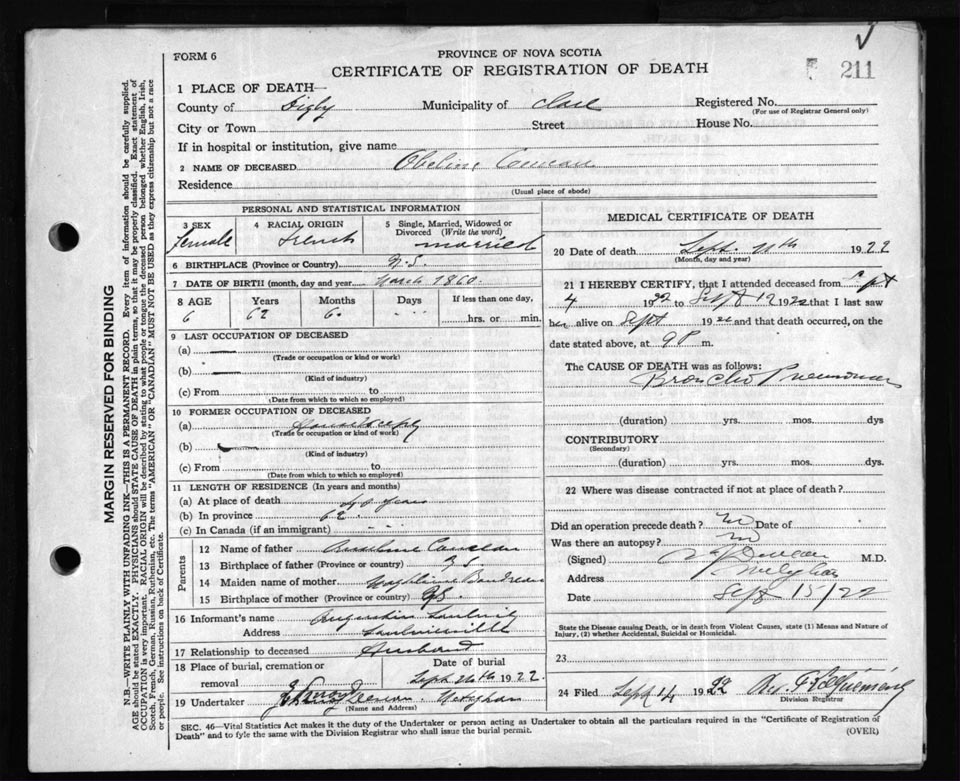 FORM 6
PROVINCE OF NOVA SCOTIA
CERTIFICATE OF REGISTRATION OF DEATH
211
1 PLACE OF DEATH—
County of Digby Municipality of Clare Registered No.
(For use of Registrar General only)
City or Town Street House No.
If in hospital or institution, give name
2 NAME OF DECEASED Obeline Comeau
Residence
(Usual place of abode)
PERSONAL AND STATISTICAL INFORMATION
3 SEX 4 RACIAL ORIGIN 5 Single, Married, Widowed or Divorced (Write the word)
female French married
6 BIRTHPLACE (Province or Country) N.S
7 DATE OF BIRTH (month, day and year) March 1860
8 AGE Years Months Days If less than one day,
6 62 6 hrs. or min.
9 LAST OCCUPATION OF DECEASED
(a)
(Trade or occupation or kind or work)
(b)
(Kind of industry)
(c) From to
(Date from which to which so employed)
10 FORMER OCCUPATION OF DECEASED
(a)
(Trade or occupation or kind of work)
(b)
(Kind of industry)
(c) From to
(Date from which to which so employed)
11 LENGTH OF RESIDENCE (In years and months)
(a) At place of death 40 years
(b) In province 62
(c) In Canada (if an immigrant)
Parents
12 Name of father
13 Birthplace of father (Province or country) NS
14 Maiden name of mother Boudreau
15 Birthplace of mother (Province or country) NS
16 Informant's name Augustin
Address Saulnierville
17 Relationship to deceased Husband
18 Place of burial, cremation or removal Date of burial
Sept. 1922
19 Undertaker Meteghan
(Name and Address)
MEDICAL CERTIFICATE OF DEATH
20 Date of death Sept. 11th 1922
(Month, day and year)
21 I HEREBY CERTIFY, that I attended deceased from Sept
4 1922 to Sept 12 1922 that I last saw
her alive on Sept 1922 and that death occurred, on the
date stated above, at 9 P m.
The CAUSE OF DEATH was as follows:
Broncho Pneumonia
(duration) yrs. mos. dys
CONTRIBUTORY
(Secondary)
(duration) yrs. mos. dys.
22 Where was disease contracted if not at place of death?
Did an operation precede death? no Date of
Was there an autopsy? no
(Signed) M.D.
Address
Date Sept 15/22
State the Disease causing Death, or in death from Violent Causes, state (1) Means and Nature of Injury, (2) whether Accidental, Suicidal or Homicidal.
23
24 Filed Sept 14 1922
Division Registrar
SEC. 46—Vital Statistics Act makes it the duty of the Undertaker or person acting as Undertaker to obtain all the particulars required in the "Certificate of Registration of Death" and to fyle the same with the Division Registrar who shall issue the burial permit.
(OVER)
MARGIN RESERVED FOR BINDING
N.B.—WRITE PLAINLY WITH UNFADING INK—THIS IS A PERMANENT RECORD. Every item of information should be carefully supplied.
AGE should be stated EXACTLY. PHYSICIANS should STATE CAUSE OF DEATH in plain terms, so that it may be properly classified. Exact statement of
OCCUPATION is very important. RACIAL ORIGIN will be described by stating to what people or tongue the deceased person belonged whether English, Irish,
Scotch, French, German, Russian, Ruthenian, etc. The terms "AMERICAN" OR "CANADIAN" MUST NOT BE USED as they express citizenship but not a race
or people. See instructions on back of Certificate.